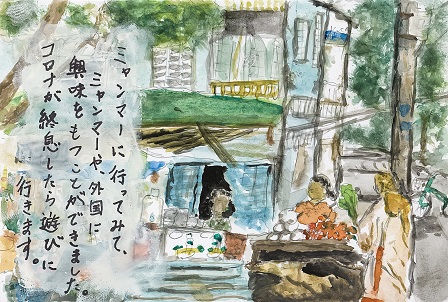 ミャンマーに行ってみて、
ミャンマーや、外国に
興味をもつことができました。
コロナが終息したら遊びに
行きます。